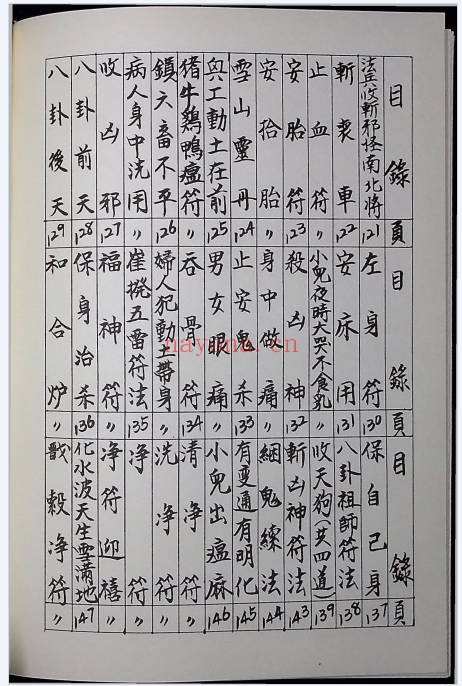 目錄 頁
法正收斬邪怪南北將 121
斬喪車 122
止血符 〃
安胎符 123
安拾胎 〃
雪山靈丹 124
與工動土在前 125
猪牛鷄鴨瘟符 〃
鎮六畜不平 126
病人身中洗用 〃
收凶邪 127
八卦前天 128
八卦後天 129
目錄 頁
左身符 130
安床用 131
小兒夜時大哭不食乳 〃
殺凶神 132
身中做痛 〃
止安鬼杀 133
男女眼痛 〃
吞骨符 134
婦人犯動土帶身 〃
崔撥五雷符法 135
福神符 〃
保身治杀 136
和合炉 〃
目錄 頁
保自己身 137
八卦祖師符法 138
收天狗(共四道) 139
斬凶神符法 143
綑鬼練法 144
有变通有明化 145
小兒出瘟麻 146
清淨符 〃
洗淨符 〃
淨符 〃
淨符迎禧 〃
化水波天生雪滿地 147
穀淨符 〃
nayona.cn